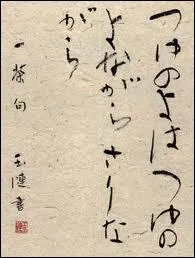 つゆのよはつゆの
よながらさりな
がら
一茶句
玉漣書